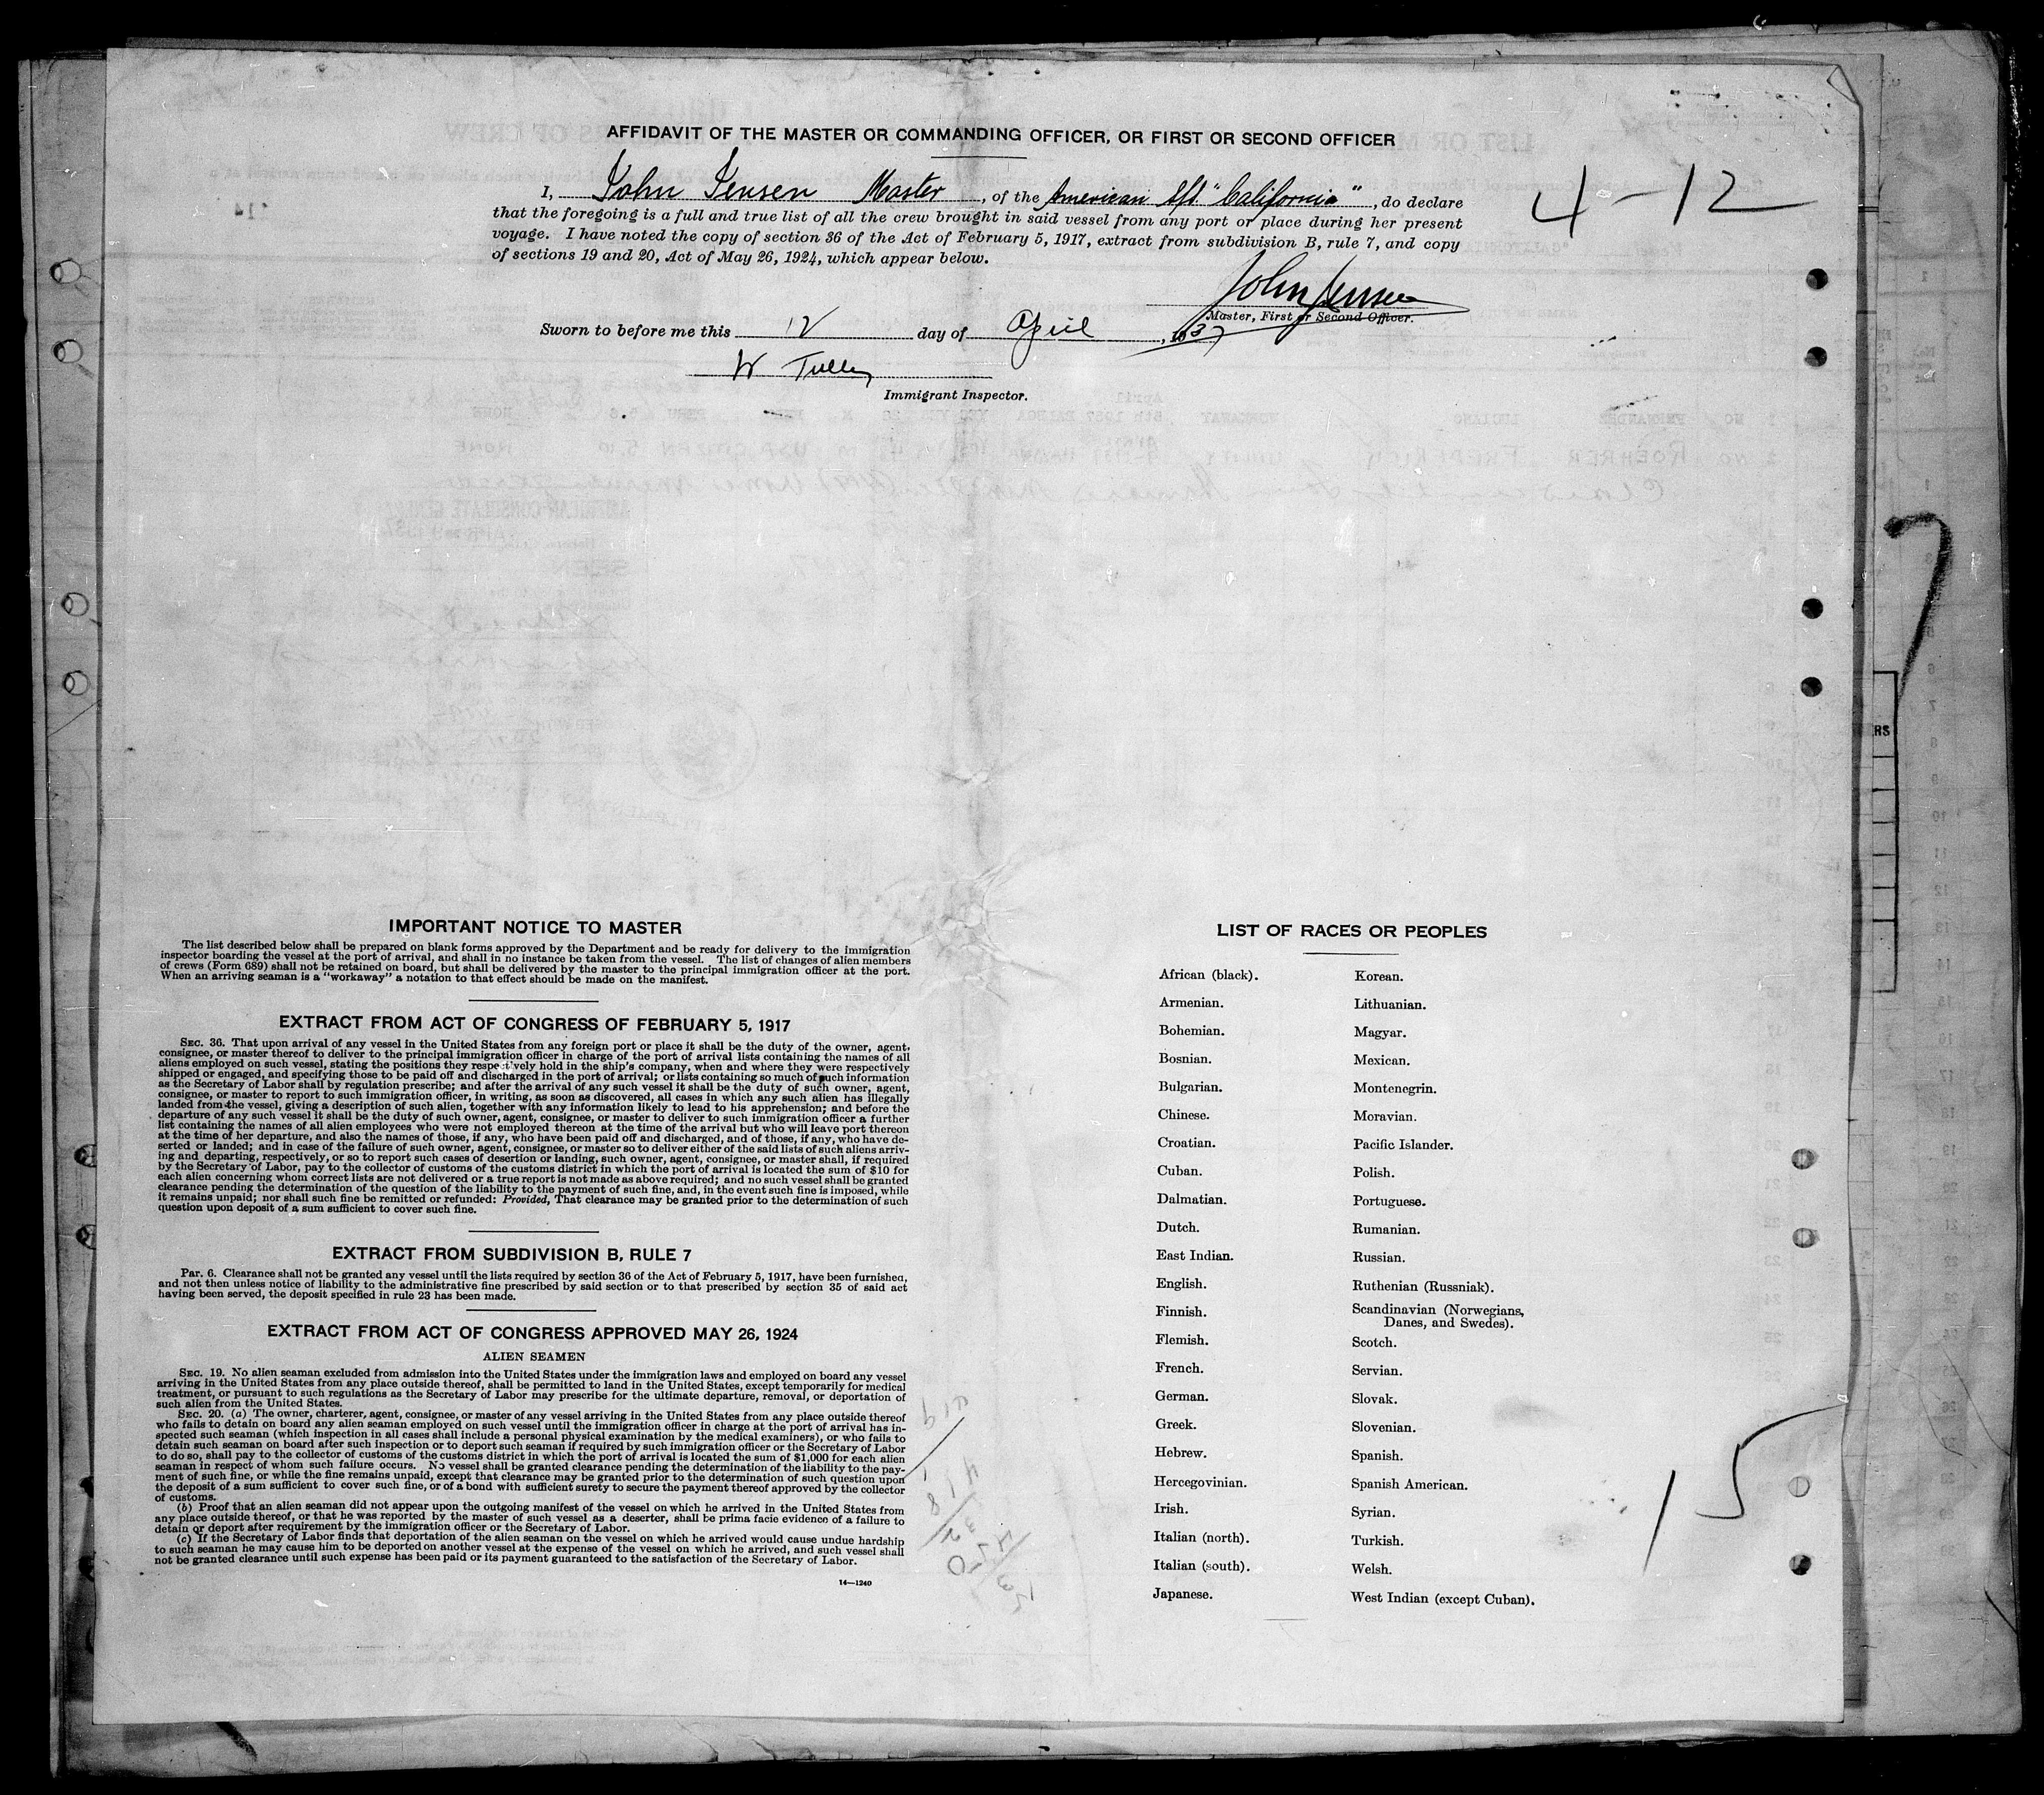 AFFIDAVIT OF THE MASTER OR COMMANDING OFFICER, OR FIRST OR SECOND OFFICER
4-12
I, John Jensen Master, of the American "California", do declare
that the foregoing is a full and true list of all the crew brought in said vessel from any port or place during her present
voyage. I have noted the copy of section 36 of the Act of February 5, 1917, extract from subdivision B, rule 7, and copy
of sections 19 and 20, Act of May 26, 1924, which appear below.
John Jensen
Master, First or Second Officer.
Sworn to before me this 12 day of April, 1937
W Tulley
Immigrant Inspector.
7
RS
IMPORTANT NOTICE TO MASTER
The list described below shall be prepared on blank forms approved by the Department and be ready for delivery to the immigration
inspector boarding the vessel at the port of arrival, and shall in no instance be taken from the vessel. The list of changes of alien members
of crews (Form 689) shall not be retained on board, but shall be delivered by the master to the principal immigration officer at the port.
When an arriving seaman is a "workaway" a notation to that effect should be made on the manifest.
EXTRACT FROM ACT OF CONGRESS OF FEBRUARY 5, 1917
SEC. 36. That upon arrival of any vessel in the United States from any foreign port or place it shall be the duty of the owner, agent,
consignee, or master thereof to deliver to the principal immigration officer in charge of the port of arrival lists containing the names of all
aliens employed on such vessel, stating the positions they respectively hold in the ship's company, when and where they were respectively
shipped or engaged, and specifying those to be paid off and discharged in the port of arrival; or lists containing so much of such information
as the Secretary of Labor shall by regulation prescribe; and after the arrival of any such vessel it shall be the duty of such owner, agent,
consignee, or master to report to such immigration officer, in writing, as soon as discovered, all cases in which any such alien has illegally
landed from the vessel, giving a description of such alien, together with any information likely to lead to his apprehension; and before the
departure of any such vessel it shall be the duty of such owner, agent, consignee, or master to deliver to such immigration officer a further
list containing the names of all alien employees who were not employed thereon at the time of the arrival but who will leave port thereon
at the time of her departure, and also the names of those, if any, who have been paid off and discharged, and of those, if any, who have de-
serted or landed; and in case of the failure of such owner, agent, consignee, or master so to deliver either of the said lists of such aliens arriv-
ing and departing, respectively, or so to report such cases of desertion or landing, such owner, agent, consignee, or master shall, if required
by the Secretary of Labor, pay to the collector of customs of the customs district in which the port of arrival is located the sum of $10 for
each alien concerning whom correct lists are not delivered or a true report is not made as above required; and no such vessel shall be granted
clearance pending the determination of the question of the liability to the payment of such fine, and, in the event such fine is imposed, while
it remains unpaid; nor shall such fine be remitted or refunded: Provided, That clearance may be granted prior to the determination of such
question upon deposit of a sum sufficient to cover such fine.
EXTRACT FROM SUBDIVISION B, RULE 7
PAR. 6. Clearance shall not be granted any vessel until the lists required by section 36 of the Act of February 5, 1917, have been furnished,
and not then unless notice of liability to the administrative fine prescribed by said section or to that prescribed by section 35 of said act
having been served, the deposit specified in rule 23 has been made.
EXTRACT FROM ACT OF CONGRESS APPROVED MAY 26, 1924
ALIEN SEAMEN
SEC. 19. No alien seaman excluded from admission into the United States under the immigration laws and employed on board any vessel
arriving in the United States from any place outside thereof, shall be permitted to land in the United States, except temporarily for medical
treatment, or pursuant to such regulations as the Secretary of Labor may prescribe for the ultimate departure, removal, or deportation of
such alien from the United States.
SEC. 20. (a) The owner, charterer, agent, consignee, or master of any vessel arriving in the United States from any place outside thereof
who fails to detain on board any alien seaman employed on such vessel until the immigration officer in charge at the port of arrival has in-
spected such seaman (which inspection in all cases shall include a personal physical examination by the medical examiners), or who fails to
detain such seaman on board after such inspection or to deport such seaman if required by such immigration officer or the Secretary of Labor
to do so, shall pay to the collector of customs of the customs district in which the port of arrival is located the sum of $1,000 for each alien
seaman in respect of whom such failure occurs. No vessel shall be granted clearance pending the determination of the liability to the pay-
ment of such fine, or while the fine remains unpaid, except that clearance may be granted prior to the determination of such question upon
the deposit of a sum sufficient to cover such fine, or of a bond with sufficient surety to secure the payment thereof approved by the collector
of customs.
(b) Proof that an alien seaman did not appear upon the outgoing manifest of the vessel on which he arrived in the United States from
any place outside thereof, or that he was reported by the master of such vessel as a deserter, shall be prima facie evidence of a failure to
detain or deport after requirement by the immigration officer or the Secretary of Labor.
(c) If the Secretary of Labor finds that deportation of the alien seaman on the vessel on which he arrived would cause undue hardship
to such seaman he may cause him to be deported on another vessel at the expense of the vessel on which he arrived, and such vessel shall
not be granted clearance until such expense has been paid or its payment guaranteed to the satisfaction of the Secretary of Labor.
14—1240
LIST OF RACES OR PEOPLES
African (black). Korean.
Armenian. Lithuanian.
Bohemian. Magyar.
Bosnian. Mexican.
Bulgarian. Montenegrin.
Chinese. Moravian.
Croatian. Pacific Islander.
Cuban. Polish.
Dalmatian. Portuguese.
Dutch. Rumanian.
East Indian. Russian.
English. Ruthenian (Russniak).
Finnish. Scandinavian (Norwegians,
Danes, and Swedes).
Flemish. Scotch.
French. Servian.
German. Slovak.
Greek. Slovenian.
Hebrew. Spanish.
Hercegovinian. Spanish American.
Irish. Syrian.
Italian (north). Turkish.
Italian (south). Welsh.
Japanese. West Indian (except Cuban).
15